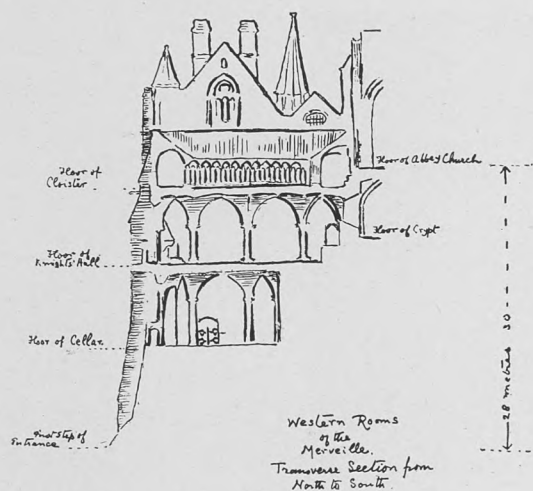 Floor of Abbey Church
Floor of
Cloister
Floor of Crypt
Floor of
Knights' Hall
Floor of Cellar
First Step of
Entrance
28 metres 30
Western Rooms
of the
Merveille.
Transverse Section from
North to South.